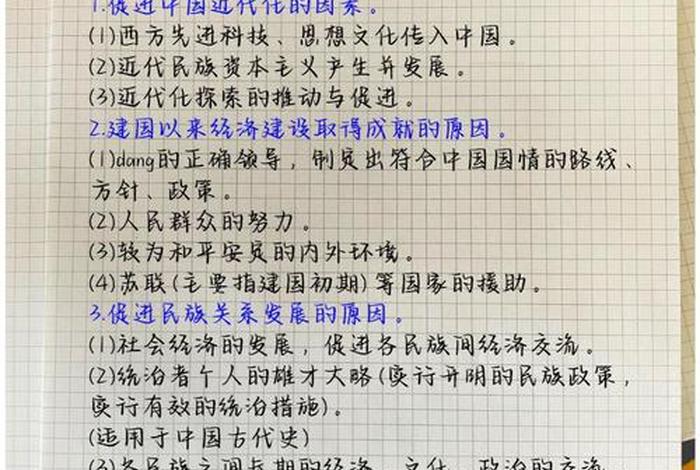 1.促进中国近代化的因素。
(1)西方先进科技、思想文化传入中国。
(2)近代民族资本主义产生并发展。
(3)近代化探索的推动与促进。
2.建国以来经济建设取得成就的原因。
(1)dang的正确领导，制定出符合中国国情的路线、
方针、政策。
(2)人民群众的努力。
(3)较为和平安定的内外环境。
(4)苏联(主要指建国初期)等国家的援助。
3.促进民族关系发展的原因。
(1)社会经济的发展，促进各民族间经济交流。
(2)统治者个人的雄才大略(实行开明的民族政策，
实行有效的统治措施)。
(适用于中国古代史)
(3)各民族之间长期的经济、文化、政治的交流